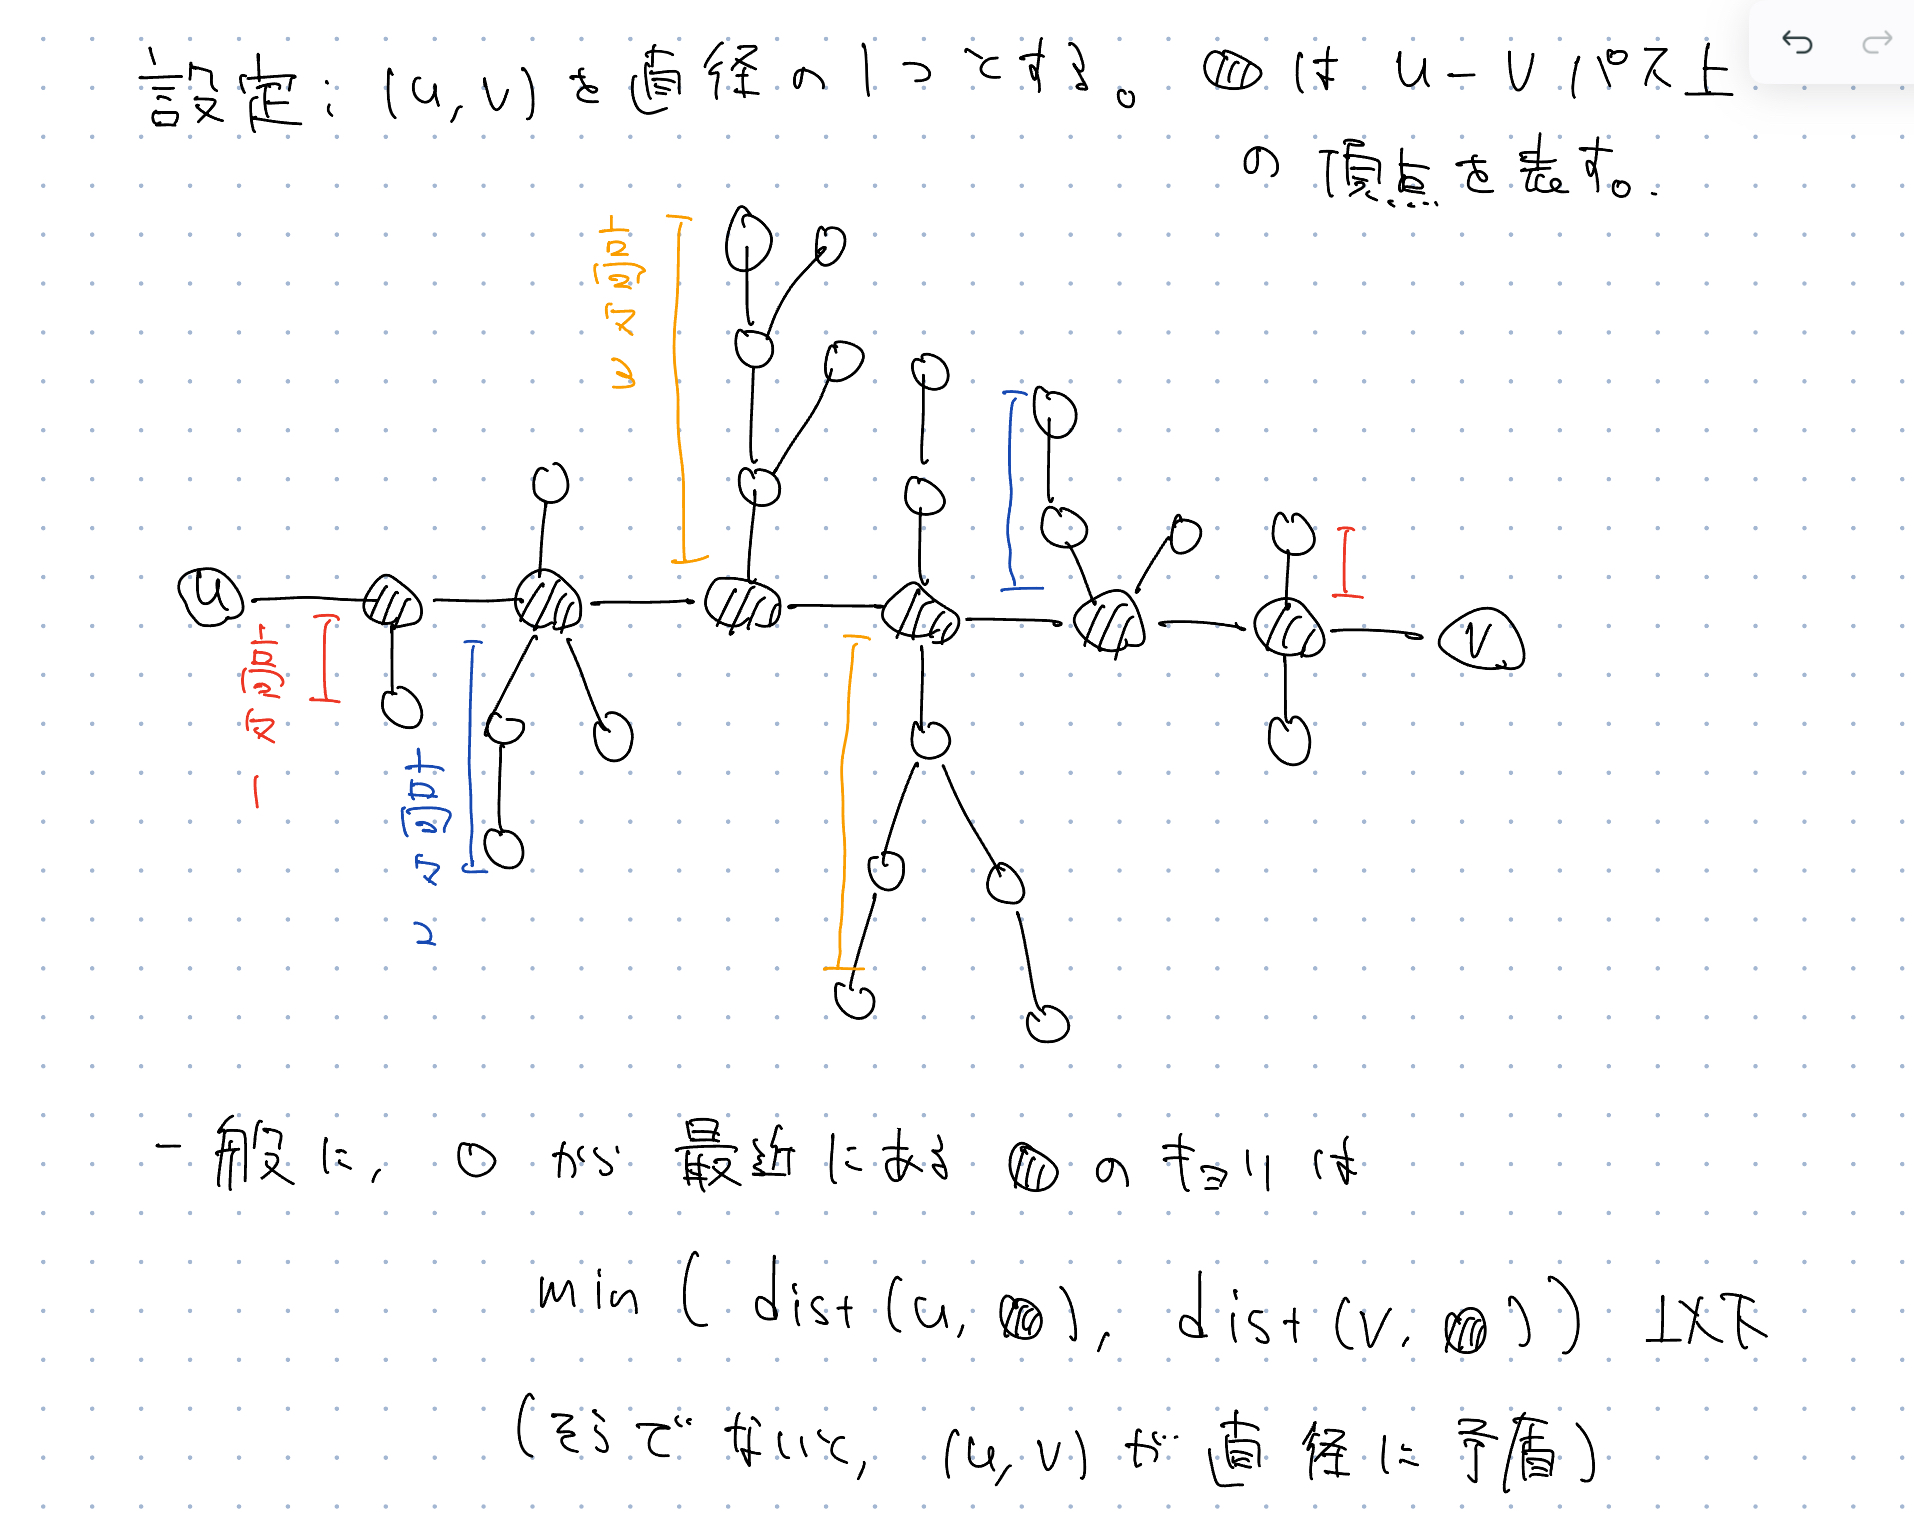 設定: (u, v) を直径の1つとする。 は u - v パス上
の頂点を表す。
高々3
u
v
高々1
高々2
一般に, ○ から 最近にある の キョリ は
min ( dist (u, ), dist (v, ) ) 以下
(そうでないと, (u, v) が 直径に矛盾)